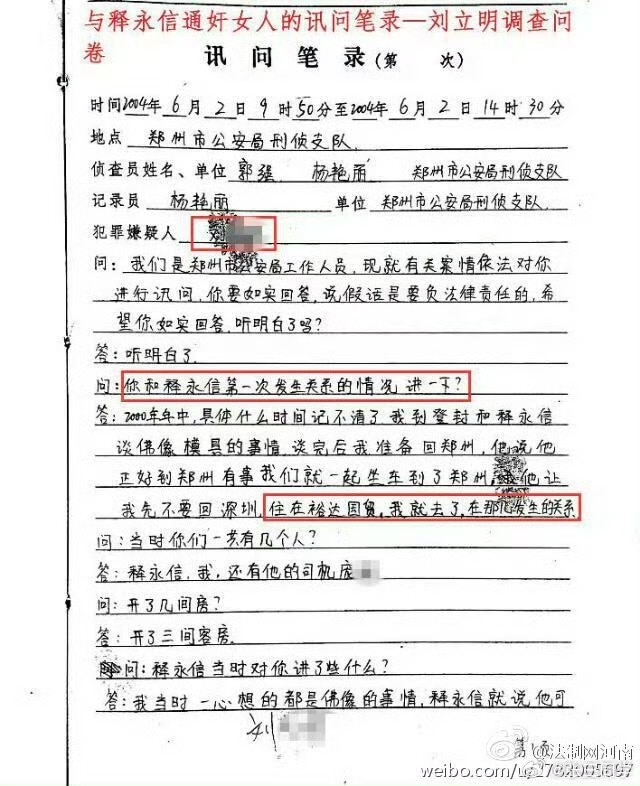 与释永信通奸女人的讯问笔录—刘立明调查问
卷
讯 问 笔 录(第 次)
时间2004年6月2日9时50分至2004年6月2日14时30分
地点 郑州市公安局刑侦支队
侦查员姓名、单位 郭强 杨艳丽 郑州市公安局刑侦支队
记录员 杨艳丽 单位 郑州市公安局刑侦支队.
犯罪嫌疑人
问:我们是郑州市公安局工作人员,现就有关案情依法对你
进行讯问,你要如实回答,说假话是要负法律责任的,希
望你如实回答,听明白了吗?
答:听明白了.
问:你和释永信第一次发生关系的情况 讲一下?
答:2000年年中,具体什么时间记不清了,我到登封和释永信
谈佛像模具的事情,谈完后我准备回郑州,他说他
正好到郑州有事我们就一起坐车到了郑州,他让
我先不要回深圳,住在裕达国贸,我就去了,在那儿发生的关系
问:当时你们一共有几个人?
答:释永信,我,还有他的司机庞
问:开了几间房?
答:开了三间客房.
问:释永信当时对你讲了些什么?
答:我当时一心想的都是佛像的事情,释永信就说他可
刘
第1页
@法制网河南
weibo.com/u